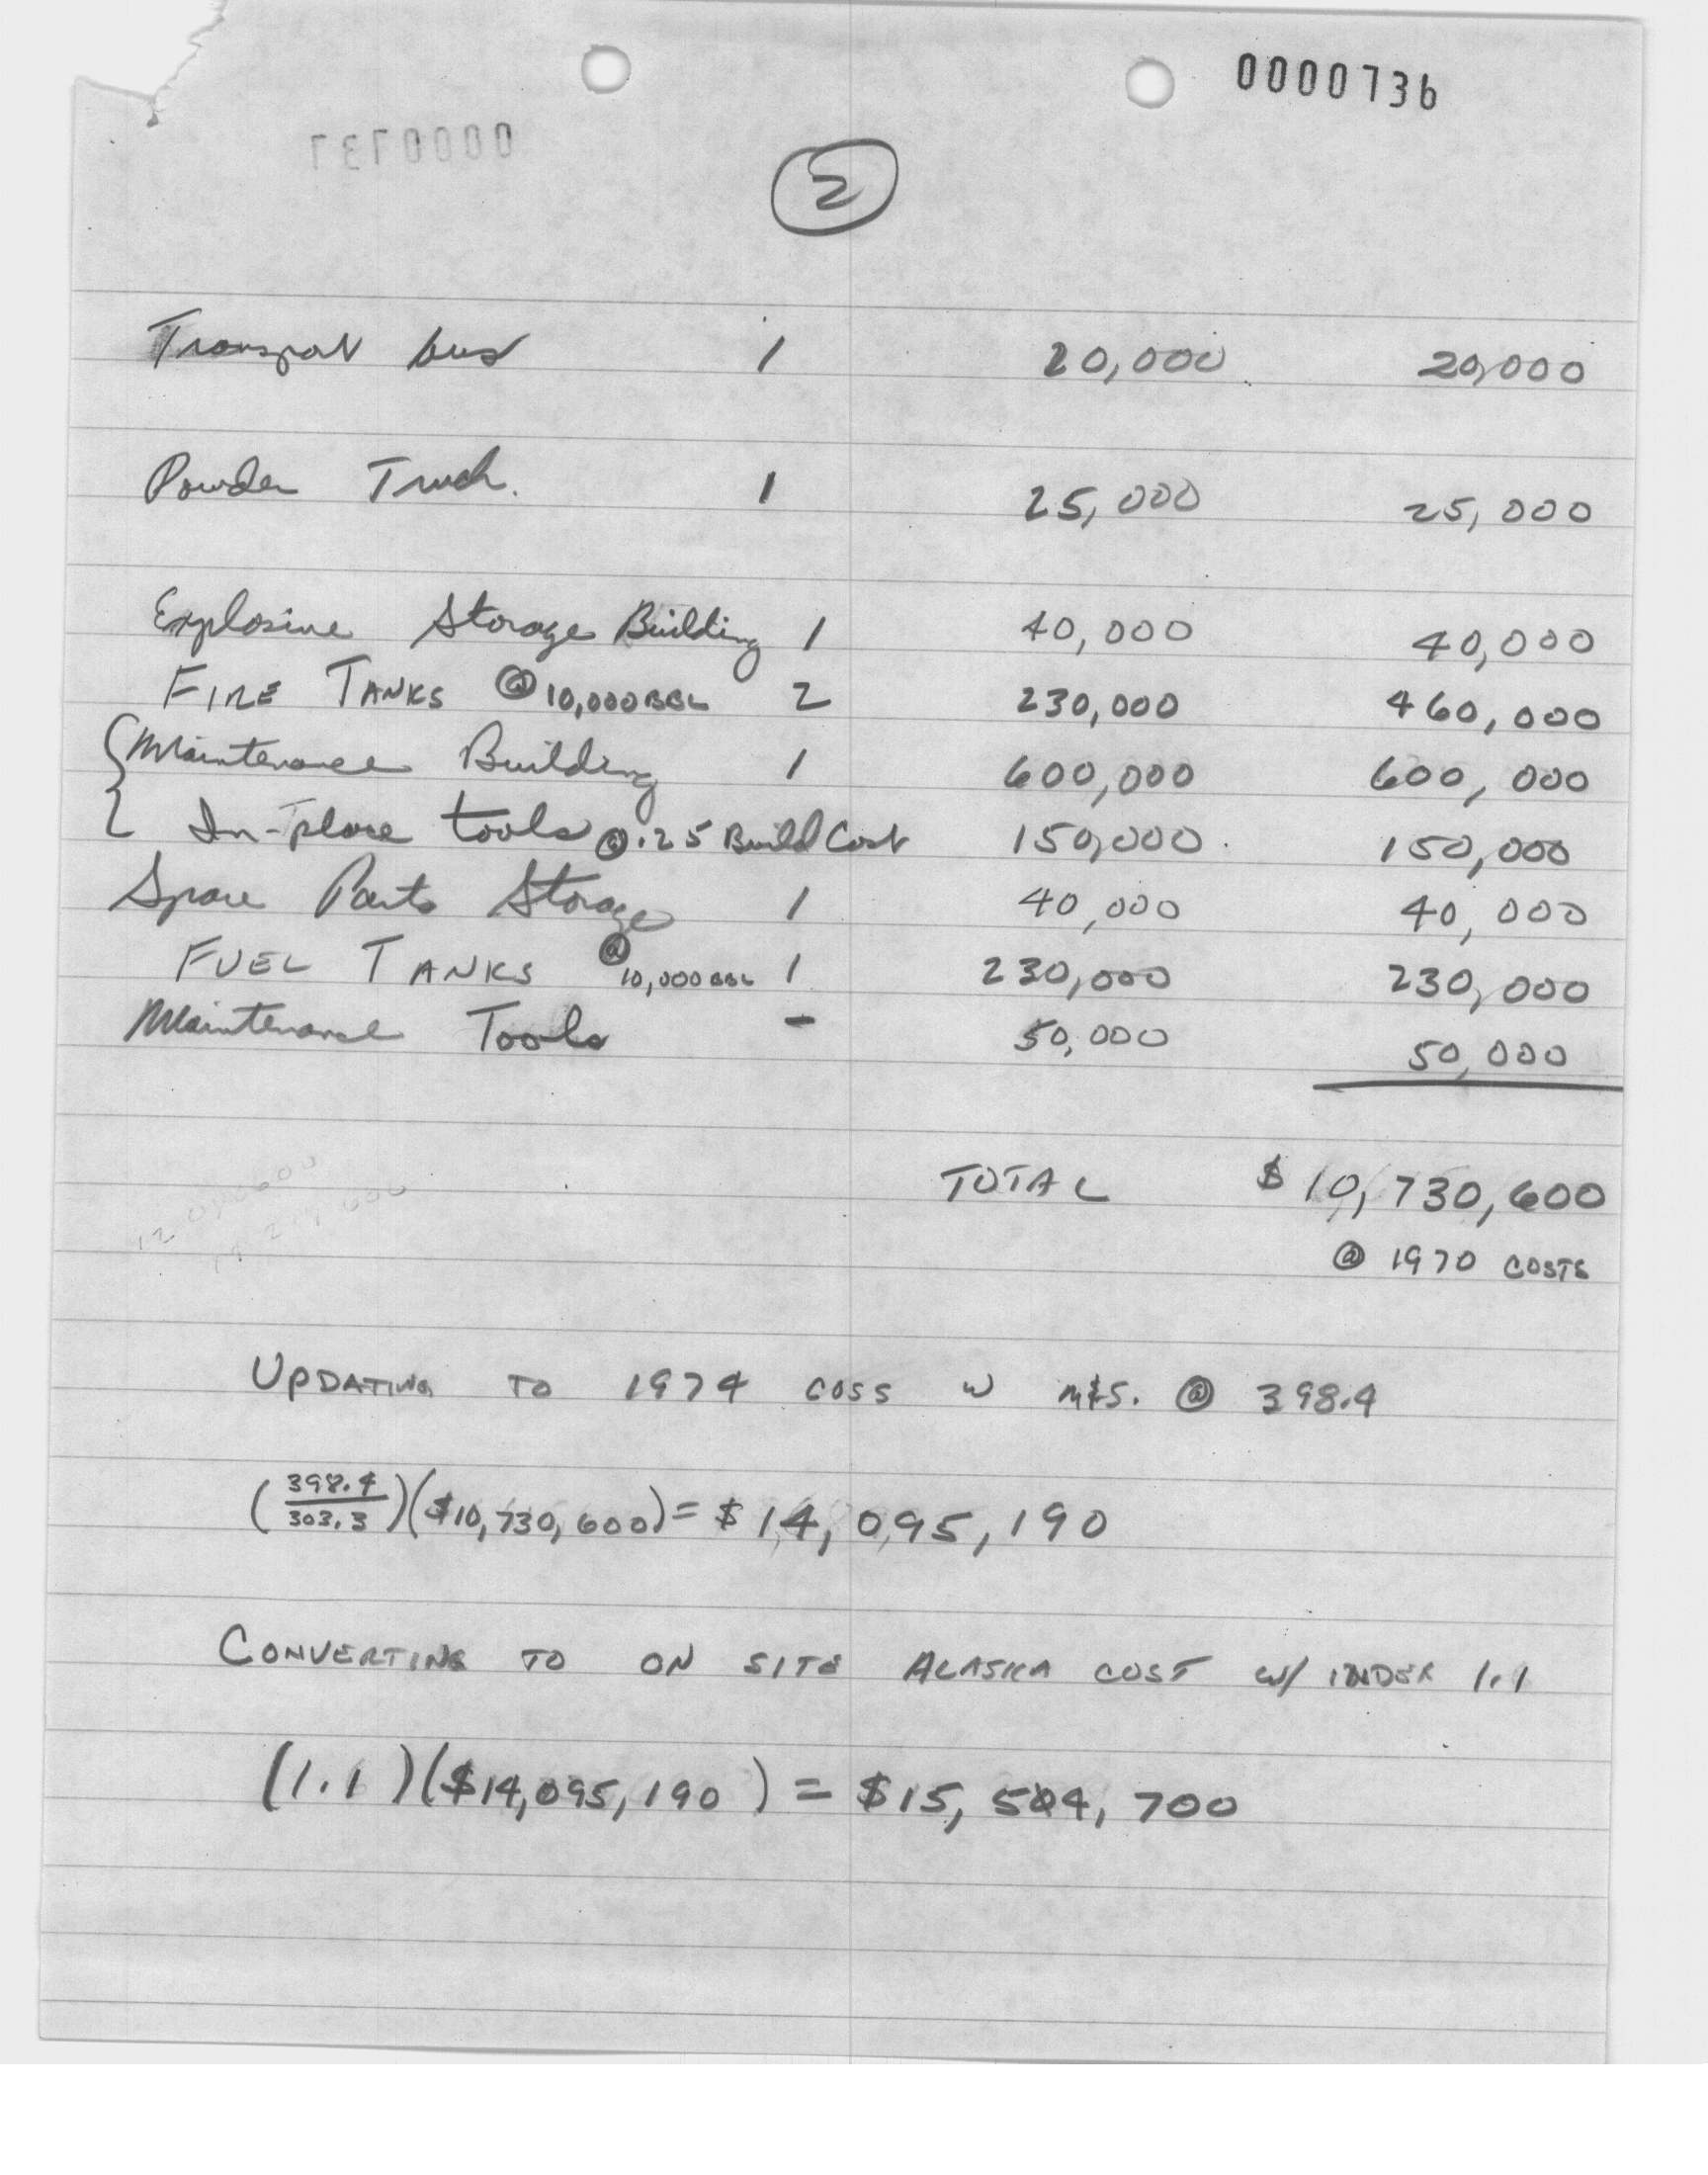 0000736
2
Transport bus 1 20,000 20,000
Powder Truck. 1 25,000 25,000
Explosive Storage Building 1 40,000 40,000
FIRE TANKS @ 10,000 BBL 2 230,000 460,000
{ Maintenance Building 1 600,000 600,000
In-place tools @ .25 Build Cost 150,000 150,000
Spare Parts Storage 1 40,000 40,000
FUEL TANKS @ 10,000 BBL 1 230,000 230,000
Maintenance Tools - 50,000 50,000
TOTAL $10,730,600
@ 1970 COSTS
UPDATING TO 1974 COSS W M&S. @ 398.4
(398.4/303.3)($10,730,600) = $14,095,190
CONVERTING TO ON SITE ALASKA COST W/ INDEX 1.1
(1.1)($14,095,190) = $15,504,700